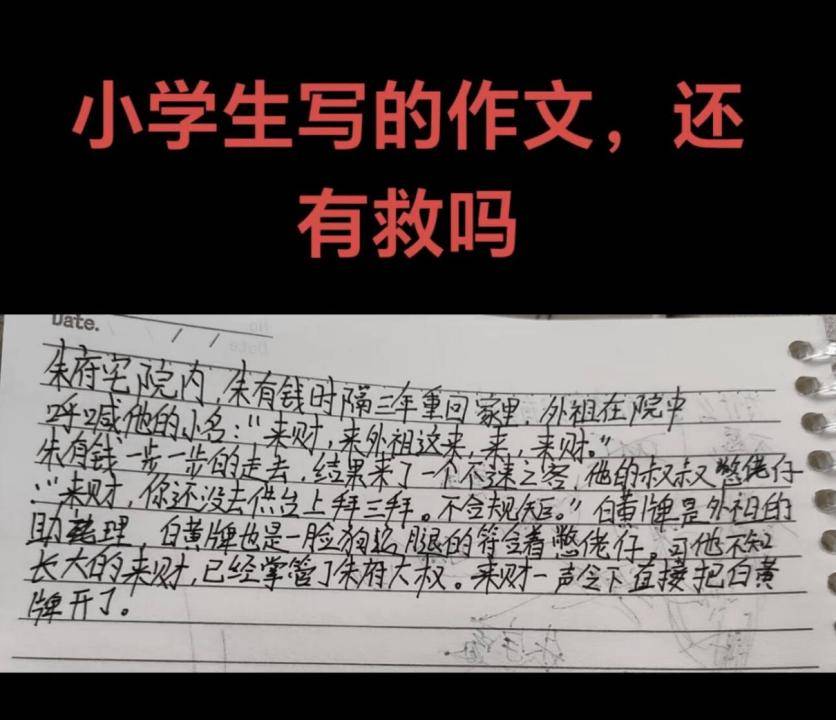 小学生写的作文，还
有救吗
Date.
朱府宅院内，朱有钱时隔三年重回家里，外祖在院中
呼喊他的小名：“来财，来外祖这来，来，来财。”
朱有钱一步一步的走去，结果来了一个不速之客，他的叔叔憋佬仔
：“来财，你还没去供台上拜三拜。不合规矩。”白黄牌是外祖的
助理，白黄牌也是一脸狗腿的符合着憋佬仔。可他不知
长大的来财，已经掌管了朱府大权。来财一声令下直接把白黄
牌开了。